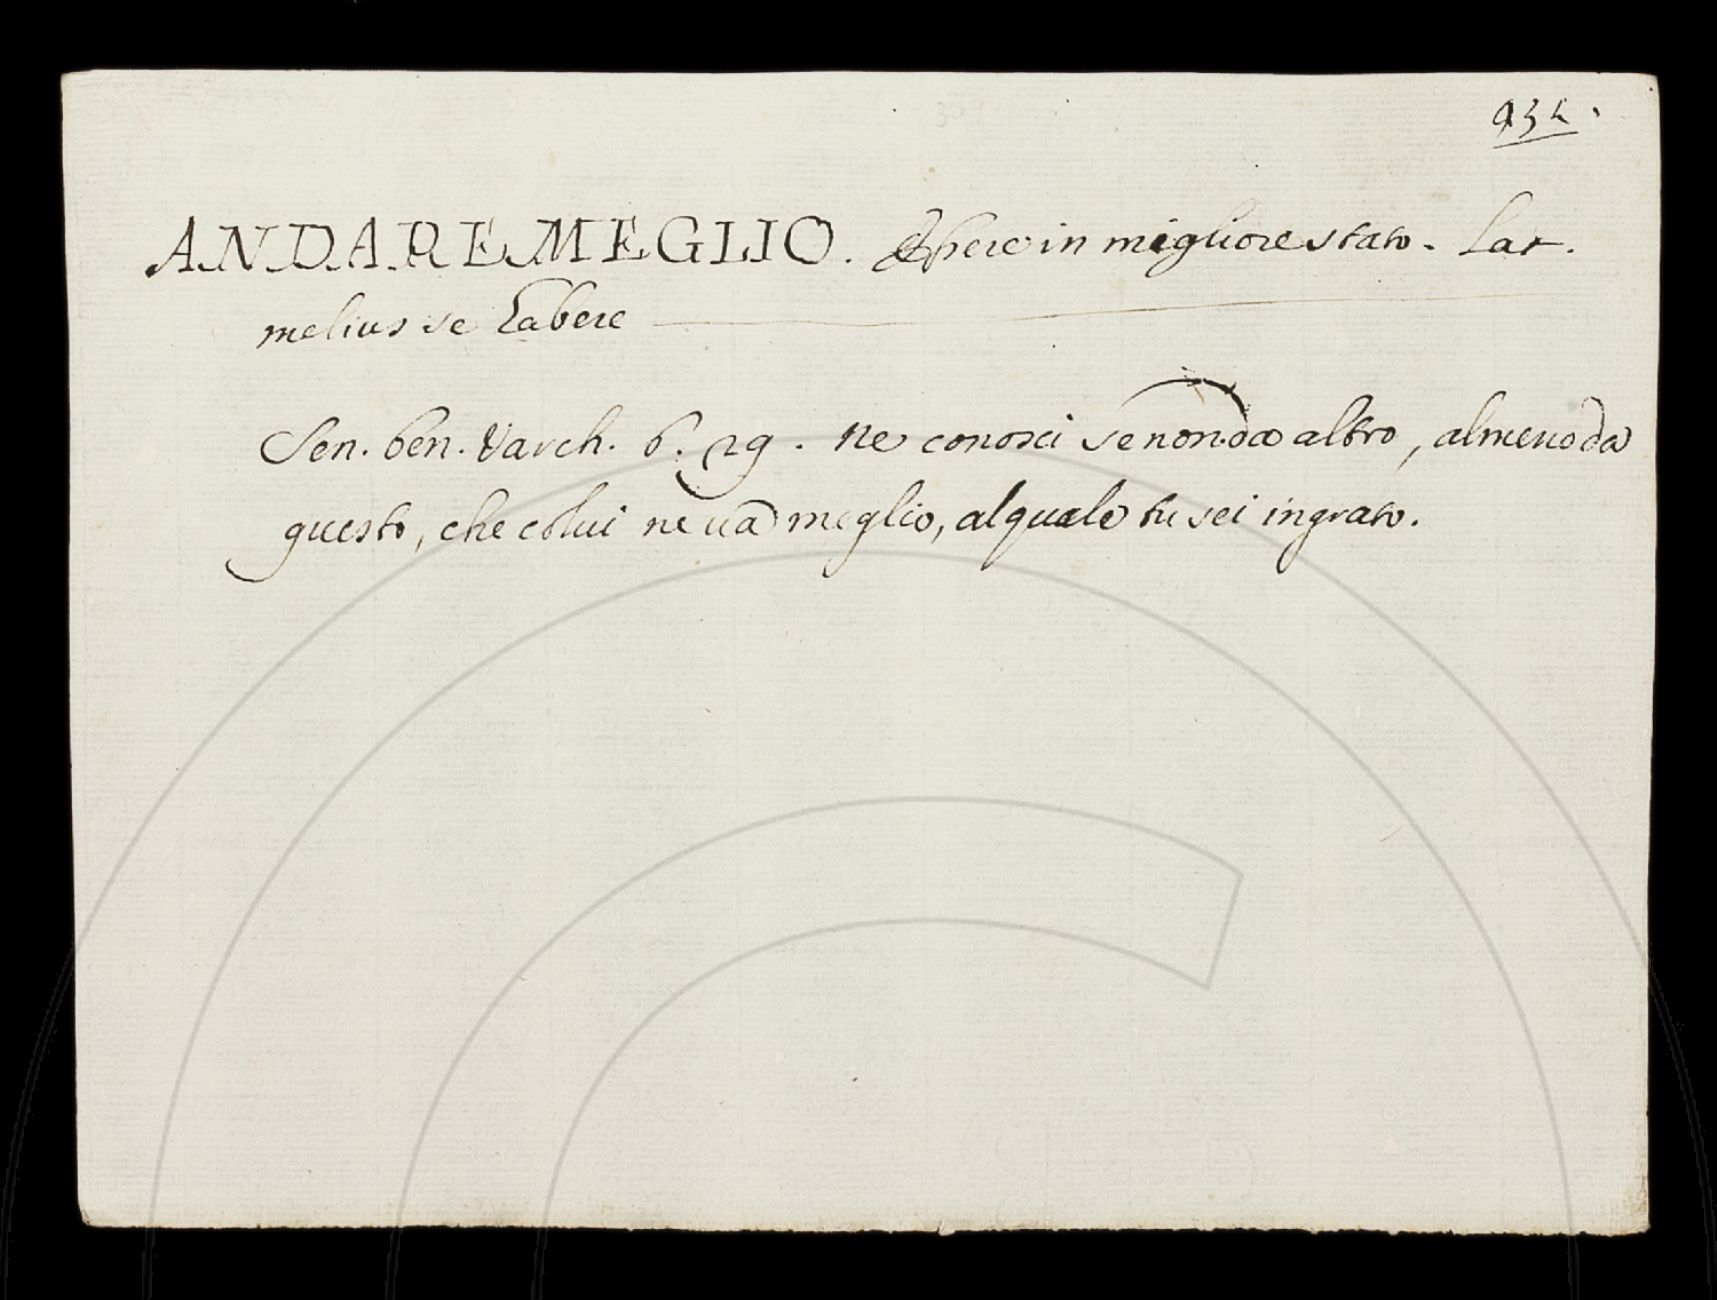 932.
ANDARE MEGLIO. Essere in migliore stato. Lat.
melius se habere
Sen. ben. Varch. 6. 29. ne conosci se non da altro, almeno da
questo, che colui ne va meglio, al quale tu sei ingrato.